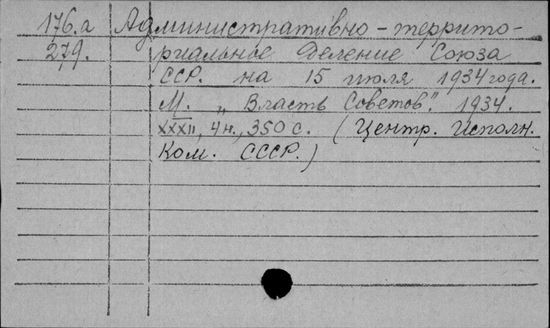 176.а Административно-террито-
279. риальное деление Союза
ССР. на 15 июля 1934 года.
М. „Власть Советов", 1934.
XXXII, 4 н., 350 с. (Центр. Исполн.
Ком. СССР.)